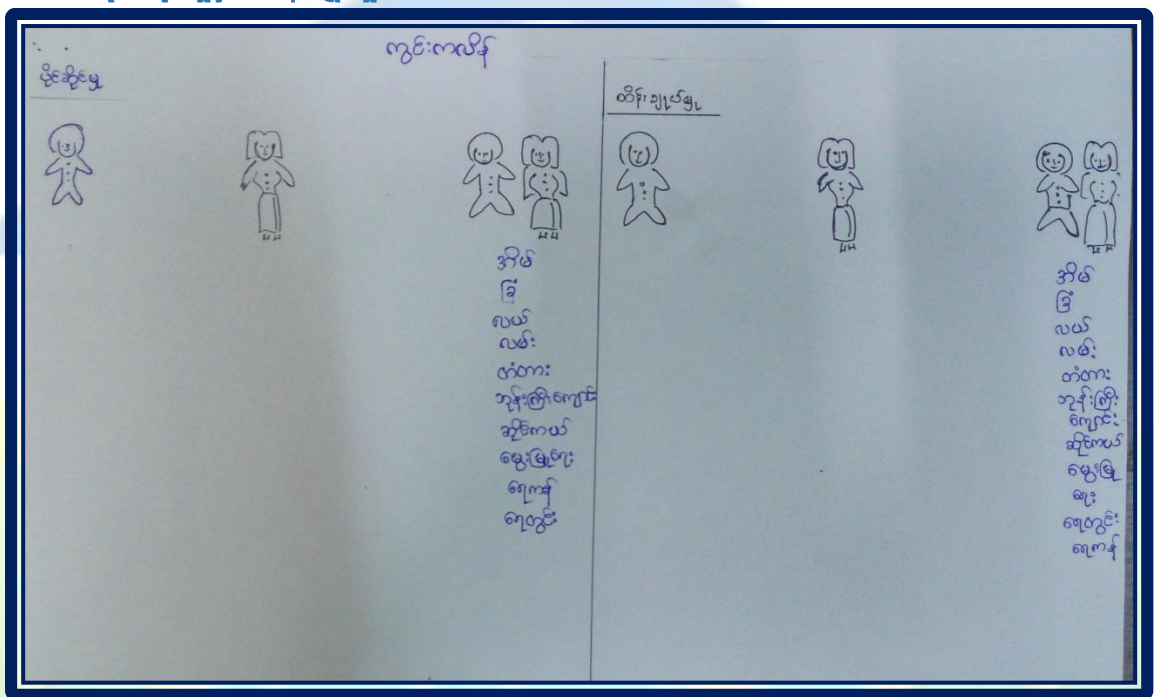 ကွင်းကလိန်
ပိုင်ဆိုင်မှု
အိမ်
ခြံ
လယ်
လမ်း
တံတား
ဘုန်းကြီးကျောင်း
ဆိုင်ကယ်
မွေးမြူရေး
ရေကန်
ရေတွင်း
ထိန်းချုပ်မှု
အိမ်
ခြံ
လယ်
လမ်း
တံတား
ဘုန်းကြီး
ကျောင်း
ဆိုင်ကယ်
မွေးမြူ
ရေး
ရေတွင်း
ရေကန်